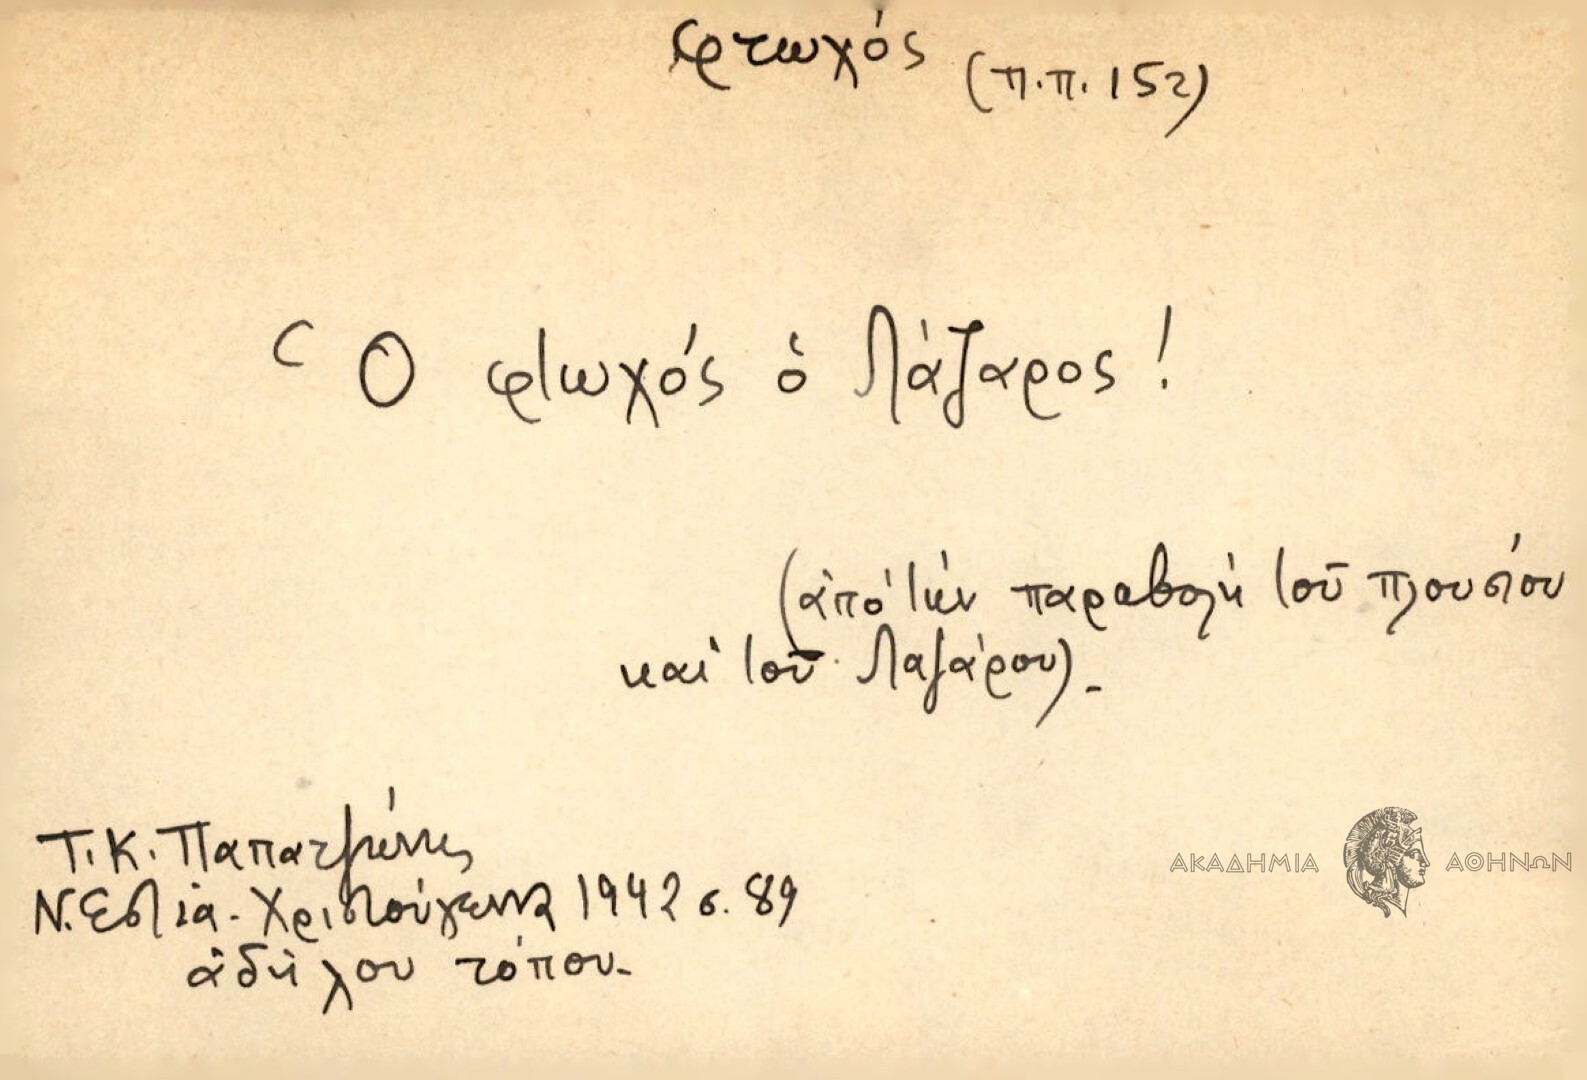 φτωχός (π.π. 152)
Ὁ φτωχός ὁ Λάζαρος!
(ἀπό τήν παραβολή τοῦ πλουσίου
καί τοῦ Λαζάρου).-
Τ.Κ. Παπατζώνης
Ν. Εστία - Χριστούγεννα 1942 σ. 89
ἀδήλου τόπου.
ΑΚΑΔΗΜΙΑ ΑΘΗΝΩΝ